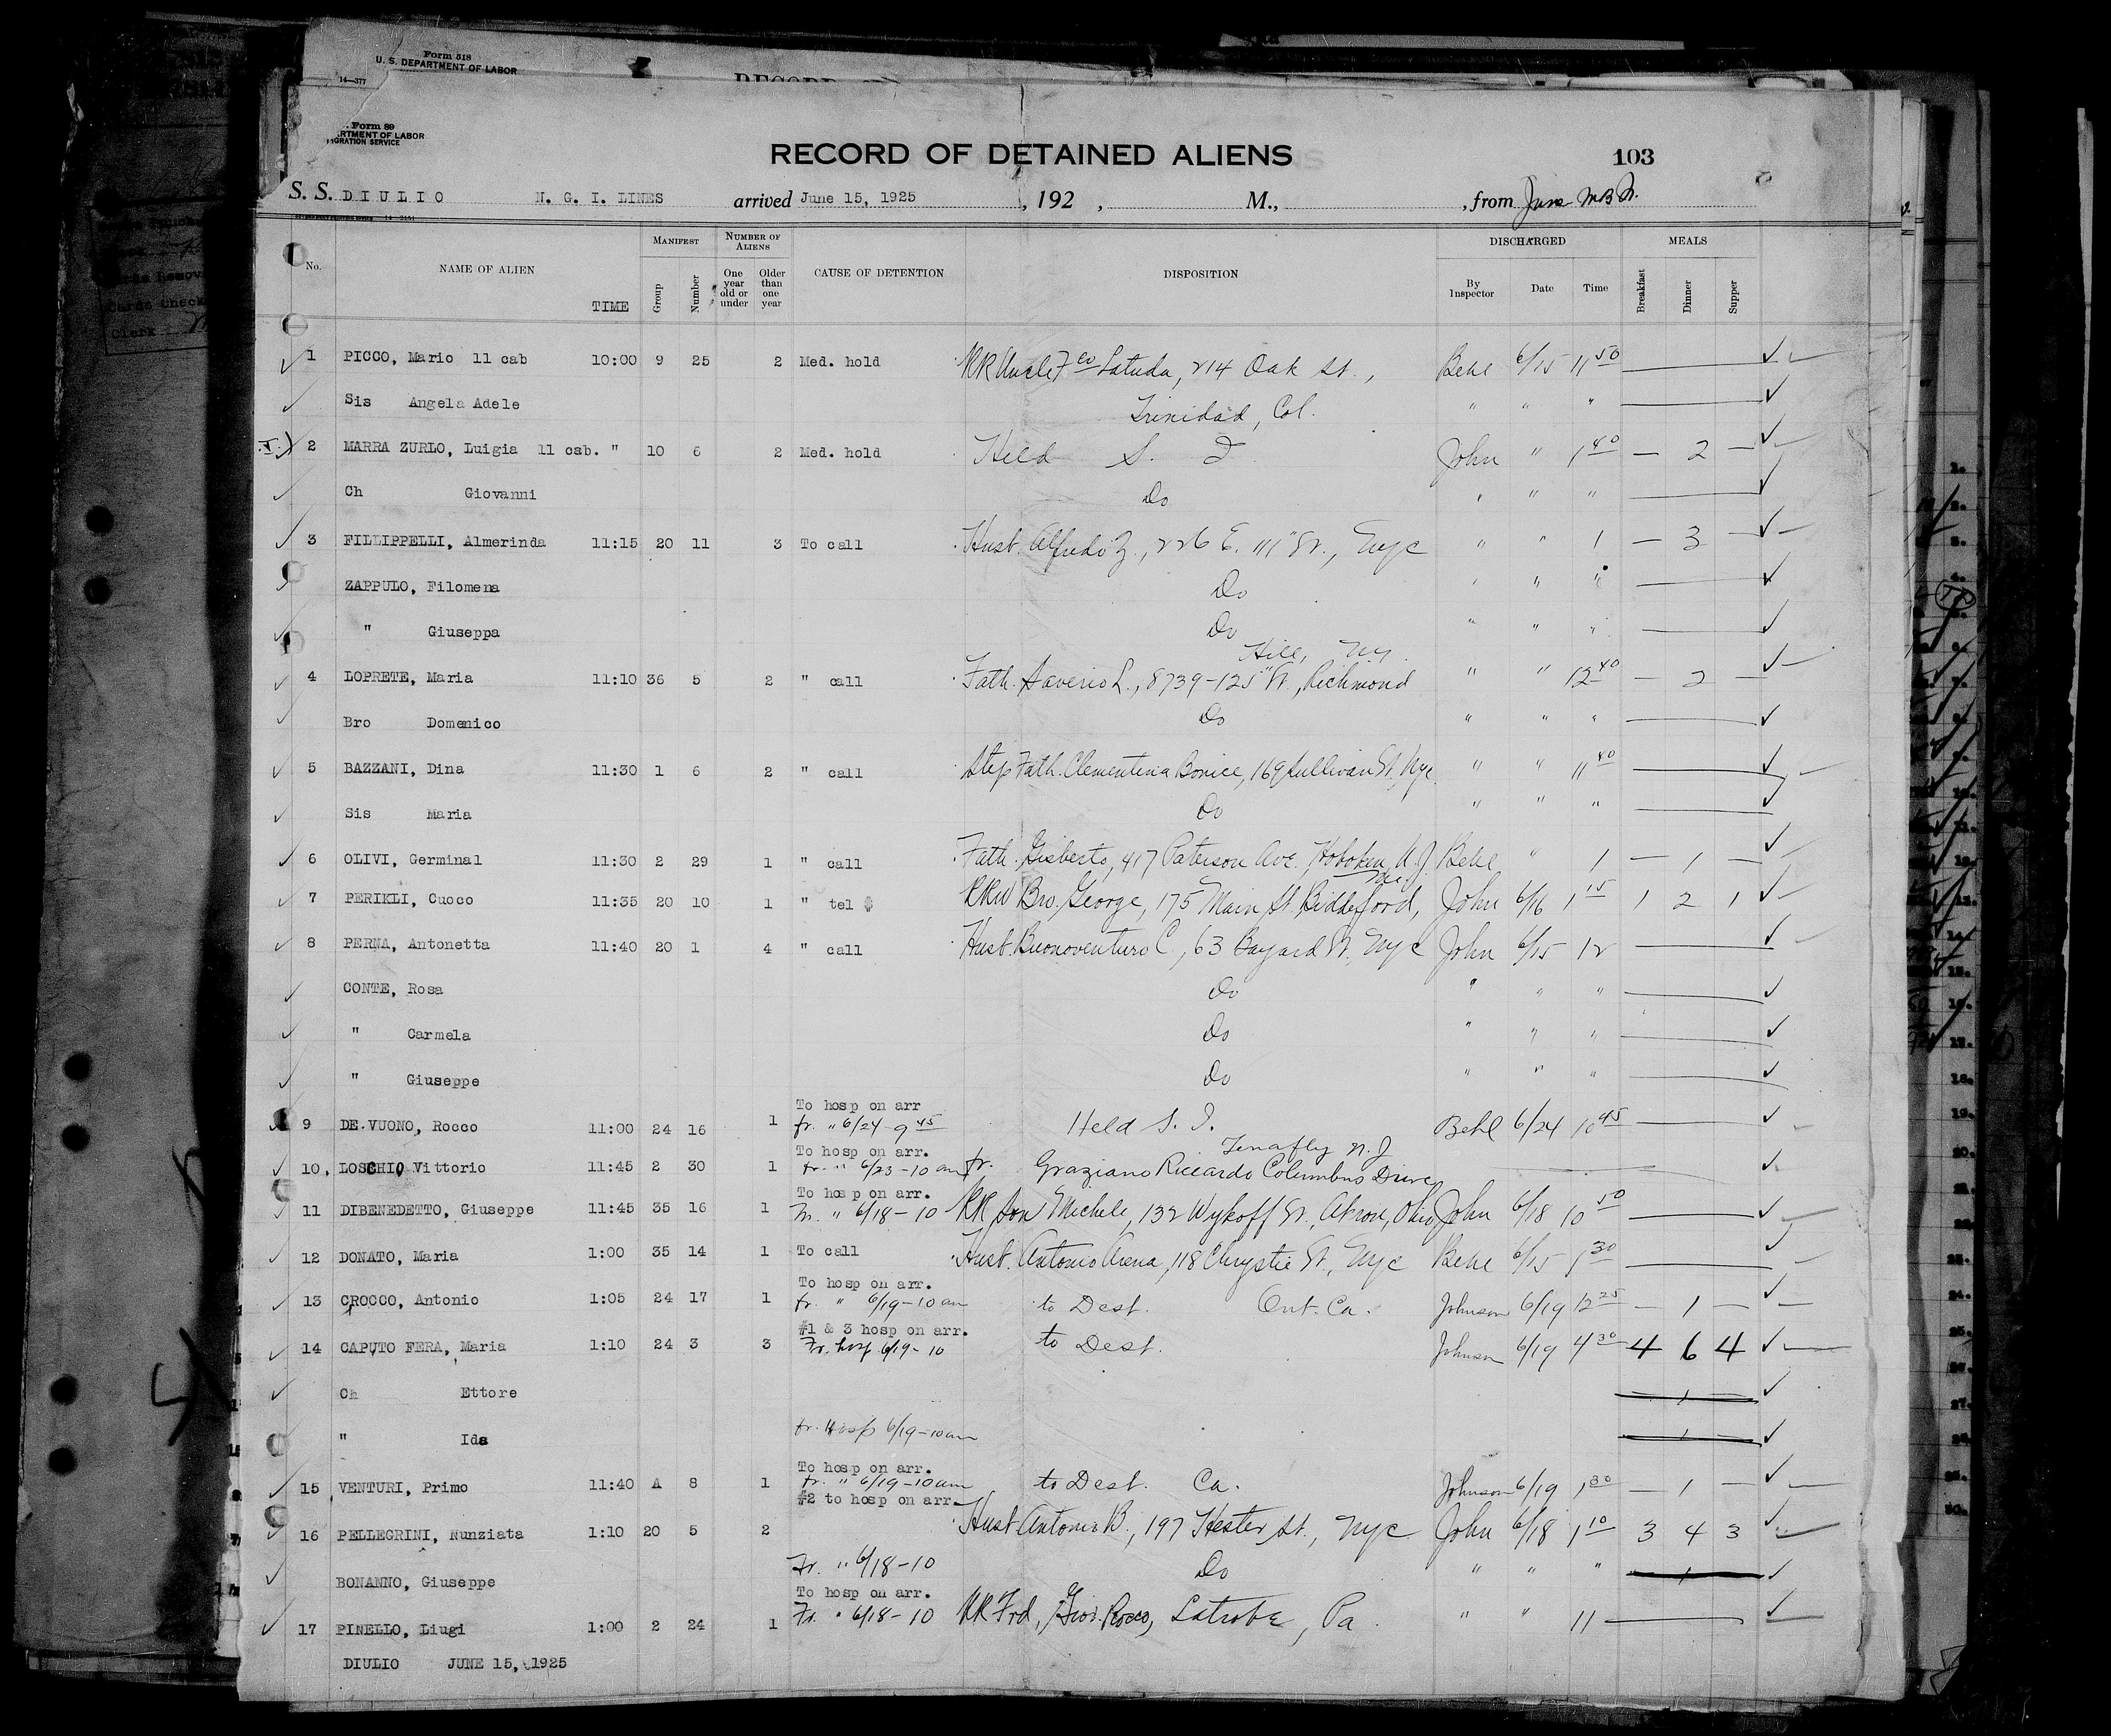 Form 518
U. S. DEPARTMENT OF LABOR
14—377
Form 89
RTMENT OF LABOR
GRATION SERVICE
RECORD OF DETAINED ALIENS 103
S. S. DIULIO N. G. I. LINES arrived June 15, 1925 , 192 , M., , from
No. NAME OF ALIEN TIME MANIFEST Group Number NUMBER OF ALIENS One year old or under Older than one year CAUSE OF DETENTION DISPOSITION DISCHARGED By Inspector Date Time MEALS Breakfast Dinner Supper
1 PICCO, Mario 11 cab 10:00 9 25 2 Med. hold RR Uncle Latuda, 214 Oak St., Behl 6/15 11 50
Sis Angela Adele Trinidad, Col. " " "
2 MARRA ZURLO, Luigia 11 cab. " 10 6 2 Med. hold Held S. I. John " 1 40 — 2 —
Ch Giovanni Do " " "
3 FILLIPPELLI, Almerinda 11:15 20 11 3 To call Hust. Alfredo Z., 226 E. 111" St., Nyc " " 1 — 3 —
ZAPPULO, Filomena Do " " "
" Giuseppa Do " " "
Hill, Ny.
4 LOPRETE, Maria 11:10 36 5 2 " call Fath. Saverio L., 8739-125" St., Richmond " " 12 40 — 2 —
Bro Domenico Do " " "
5 BAZZANI, Dina 11:30 1 6 2 " call Step Fath. Clementina Bonice, 169 Sullivan St., Nyc " " 11 40
Sis Maria Do " " "
6 OLIVI, Germinal 11:30 2 29 1 " call Fath. Gisberto, 417 Paterson Ave. Hoboken, N.J. Behl " 1 — 1 —
Me.
7 PERIKLI, Cuoco 11:35 20 10 1 " tel RRW Bro. George, 175 Main St. Biddeford, John 6/16 1 15 1 2 1
8 PERNA, Antonetta 11:40 20 1 4 " call Hust. Buonoventuro C., 63 Bayard St., Nyc John 6/15 12
CONTE, Rosa Do " " "
" Carmela Do " " "
" Giuseppe Do " " "
To hosp on arr
9 DE VUONO, Rocco 11:00 24 16 1 fr. " 6/24-9 45 Held S. I. Behl 6/24 10 45
To hosp on arr. Tenafly N.J
10, LOSCHIO Vittorio 11:45 2 30 1 fr. " 6/23-10 am fr. Graziano Riccardo Columbus Drive
To hosp on arr.
11 DIBENEDETTO, Giuseppe 11:45 35 16 1 Fr. " 6/18-10 RR Son Michele, 132 Wykoff St., Akron, Ohio John 6/18 10 50
12 DONATO, Maria 1:00 35 14 1 To call Hust. Antonio Arena, 118 Chrystie St., Nyc Behl 6/15 1 30
To hosp on arr.
13 CROCCO, Antonio 1:05 24 17 1 fr. " 6/19-10 am to Dest. Ont. Ca. Johnson 6/19 12 25 — 1 —
#1 & 3 hosp on arr.
14 CAPUTO FERA, Maria 1:10 24 3 3 Fr. hosp 6/19-10 to Dest. Johnson 6/19 4 30 4 6 4
Ch Ettore 1
" Ida fr. Hosp 6/19-10am 1
To hosp on arr.
15 VENTURI, Primo 11:40 A 8 1 fr. " 6/19-10am to Dest. Ca. Johnson 6/19 1 30 — 1 —
#2 to hosp on arr.
16 PELLEGRINI, Nunziata 1:10 20 5 2 Hust Antonio B., 197 Hester St., Nyc John 6/18 1 10 3 4 3
BONANNO, Giuseppe Fr. " 6/18-10 Do " " " 1
To hosp on arr.
17 PINELLO, Liugi 1:00 2 24 1 Fr. " 6/18-10 RR Frd, Rocco, Latrobe, Pa. " " 11
DIULIO JUNE 15, 1925